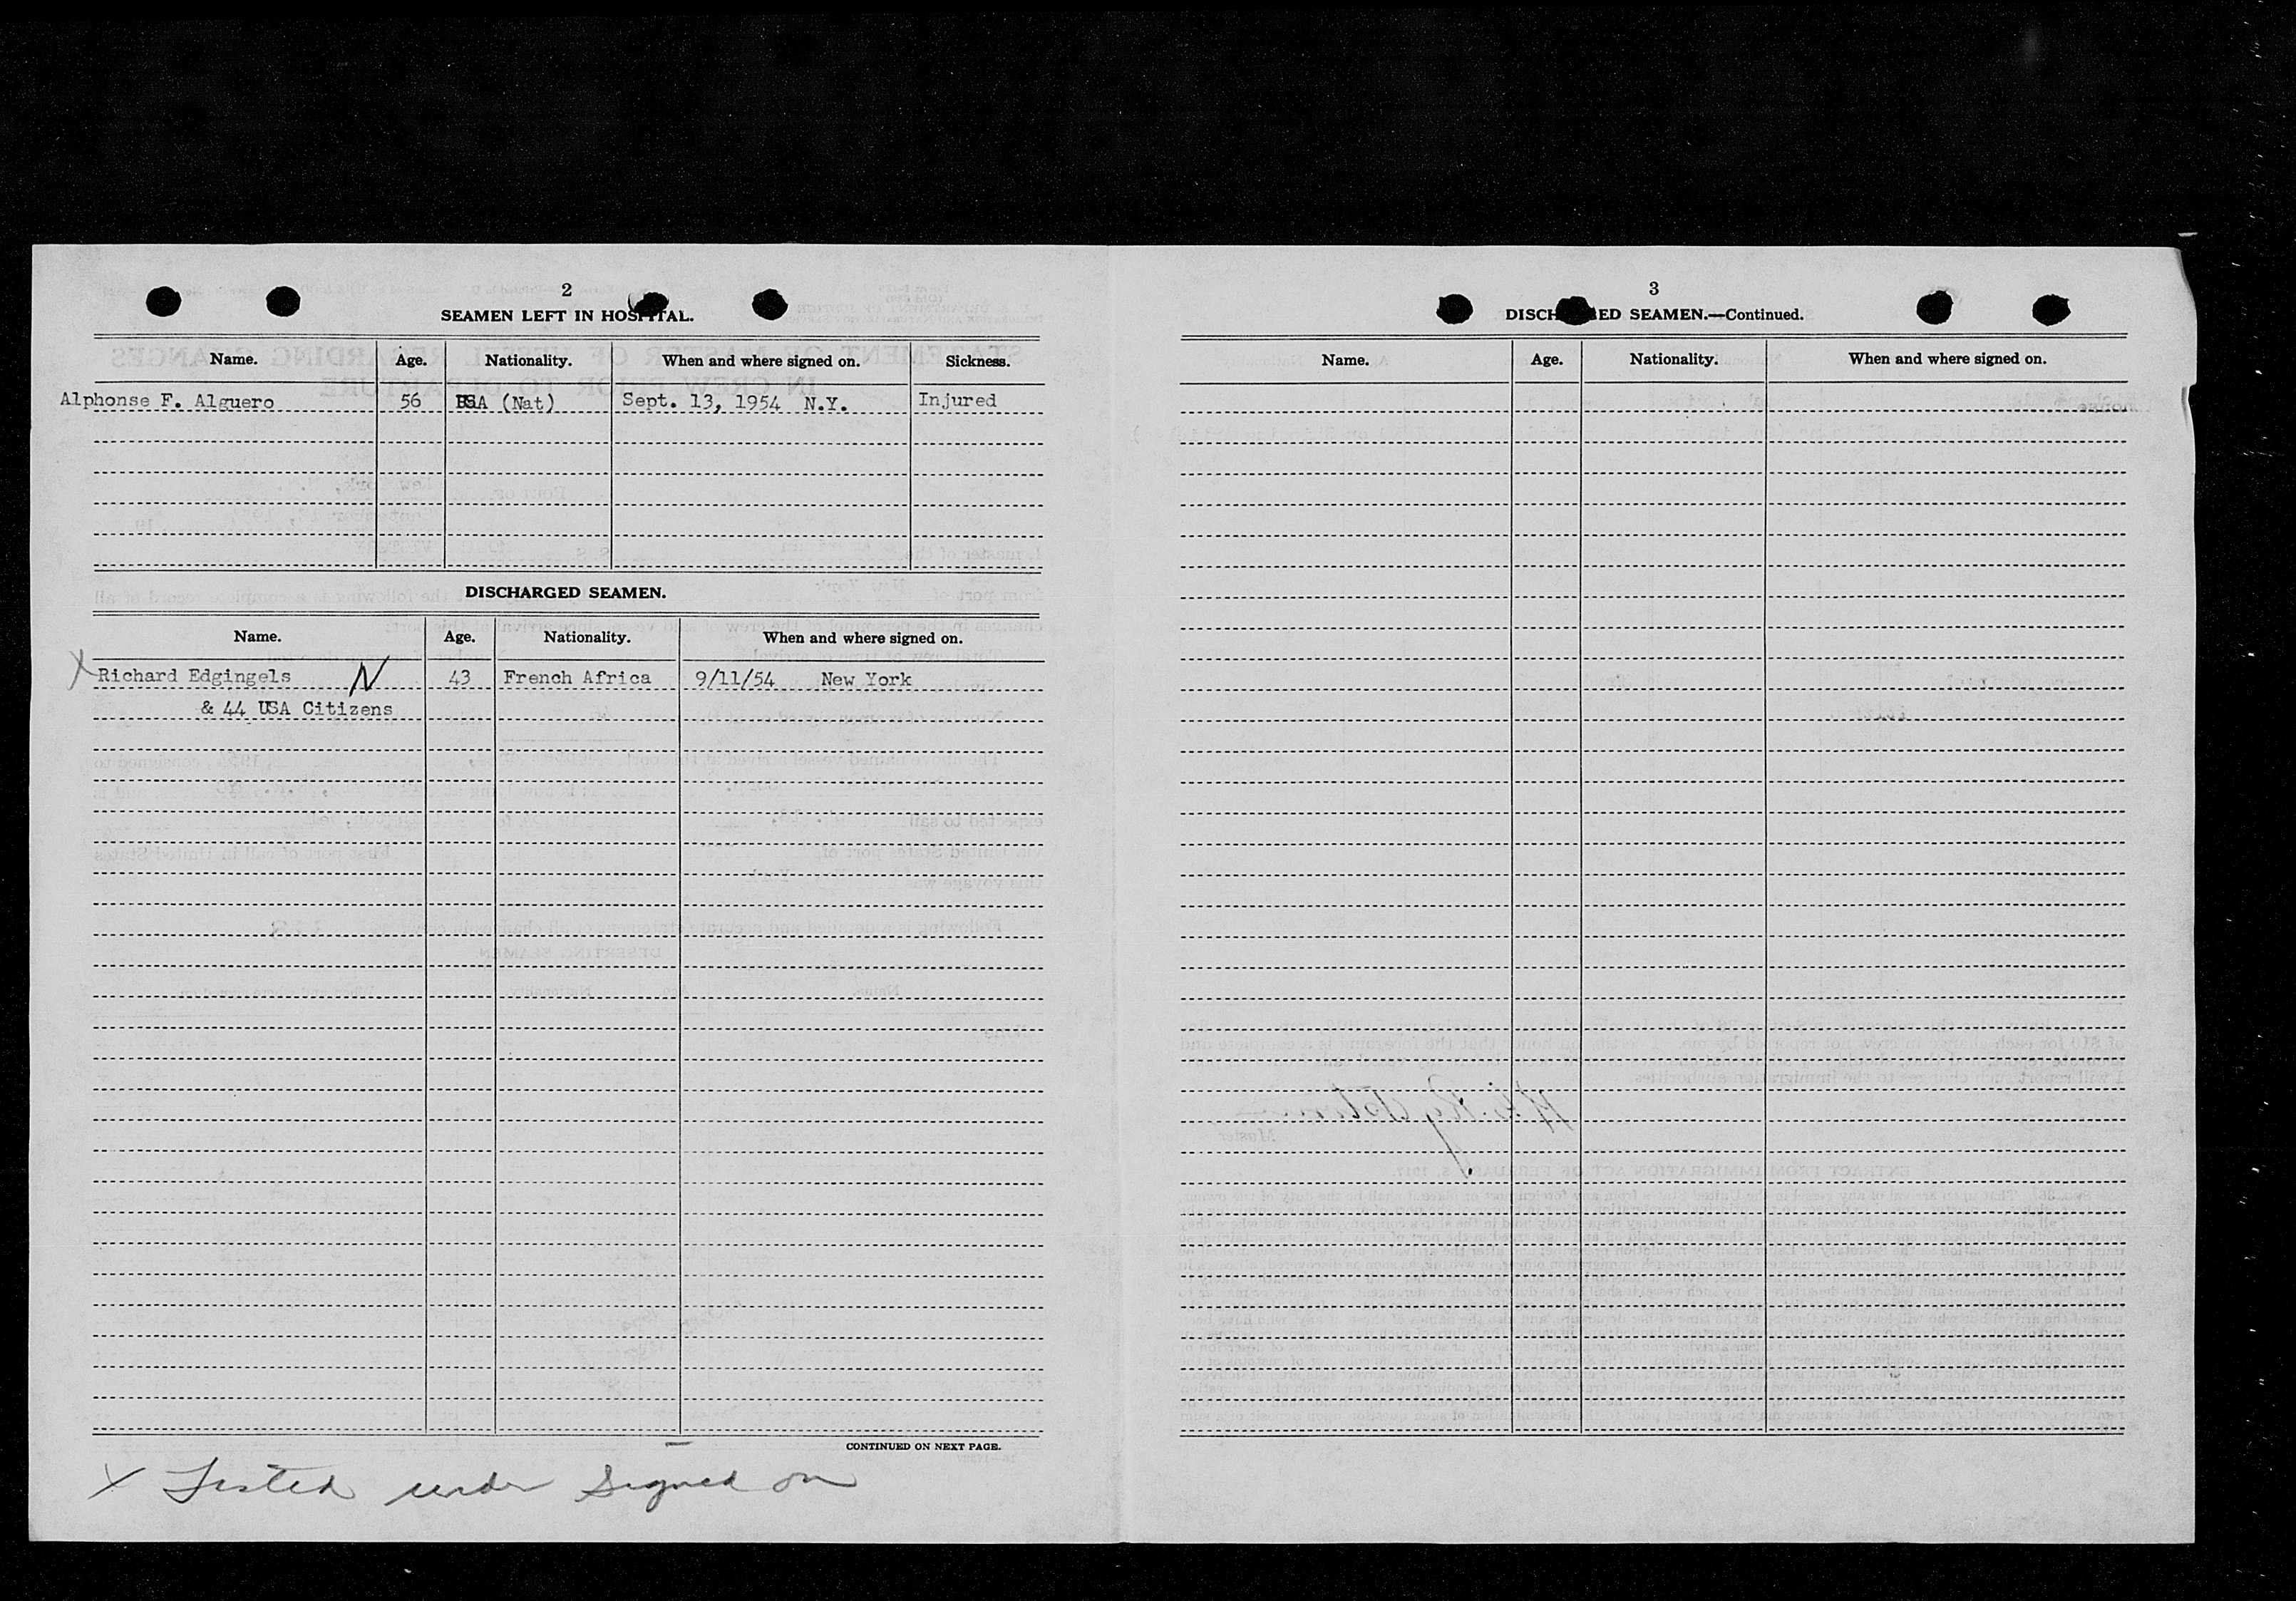 2
SEAMEN LEFT IN HOSPITAL.
Name. Age. Nationality. When and where signed on. Sickness.
Alphonse F. Alguero 56 USA (Nat) Sept. 13, 1954 N.Y. Injured
DISCHARGED SEAMEN.
Name. Age. Nationality. When and where signed on.
X Richard Edgingels N 43 French Africa 9/11/54 New York
& 44 USA Citizens
CONTINUED ON NEXT PAGE.
X Listed under Signed on
3
DISCHARGED SEAMEN.—Continued.
Name. Age. Nationality. When and where signed on.